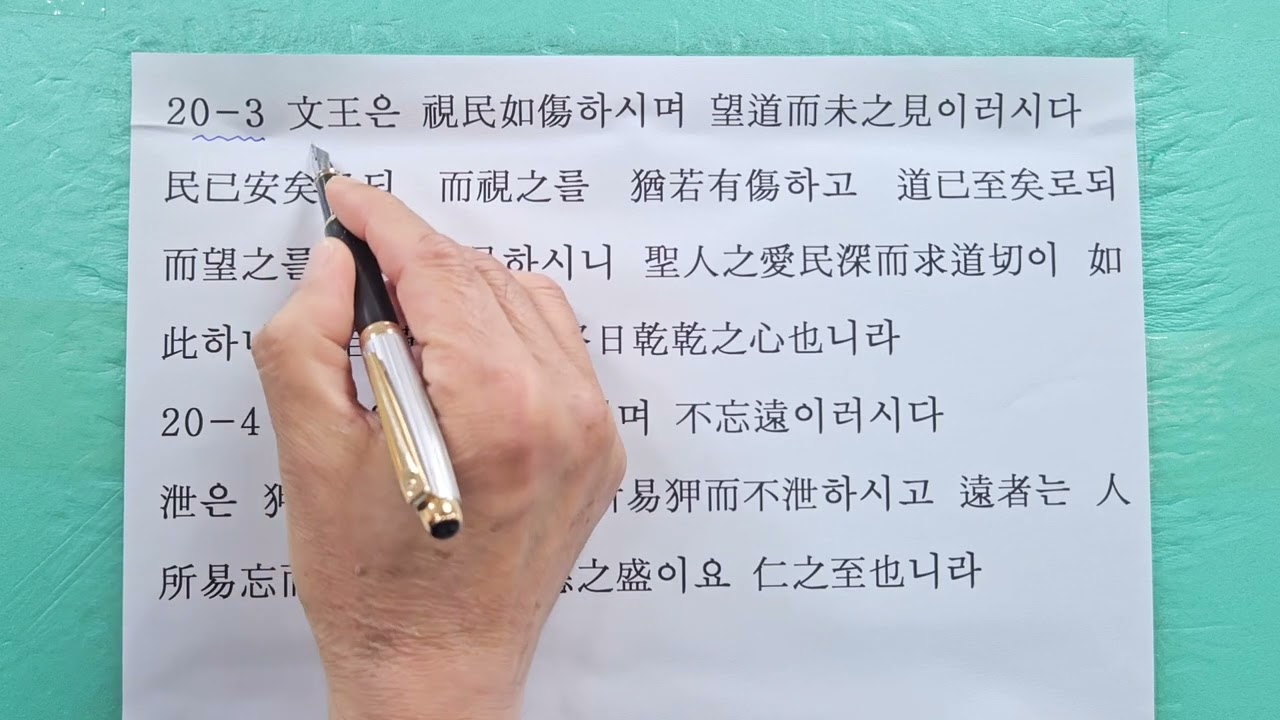 20-3 文王은 視民如傷하시며 望道而未之見이러시다
民已安矣 而視之를 猶若有傷하고 道已至矣로되
而望之를 하시니 聖人之愛民深而求道切이 如
此하 日乾乾之心也니라
20-4 며 不忘遠이러시다
泄은 易狎而不泄하시고 遠者는 人
所易忘 之盛이요 仁之至也니라